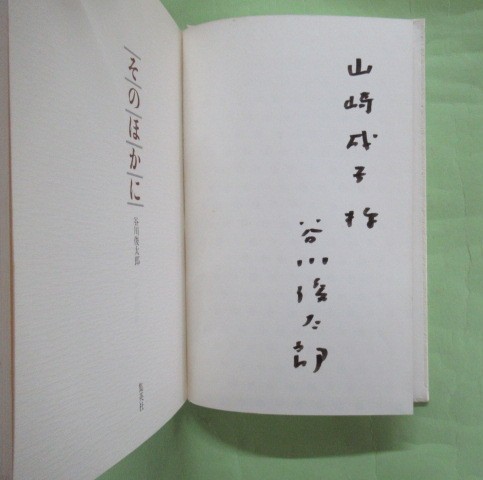 そのほかに
谷川俊太郎
集英社
山崎成子様
谷川俊太郎